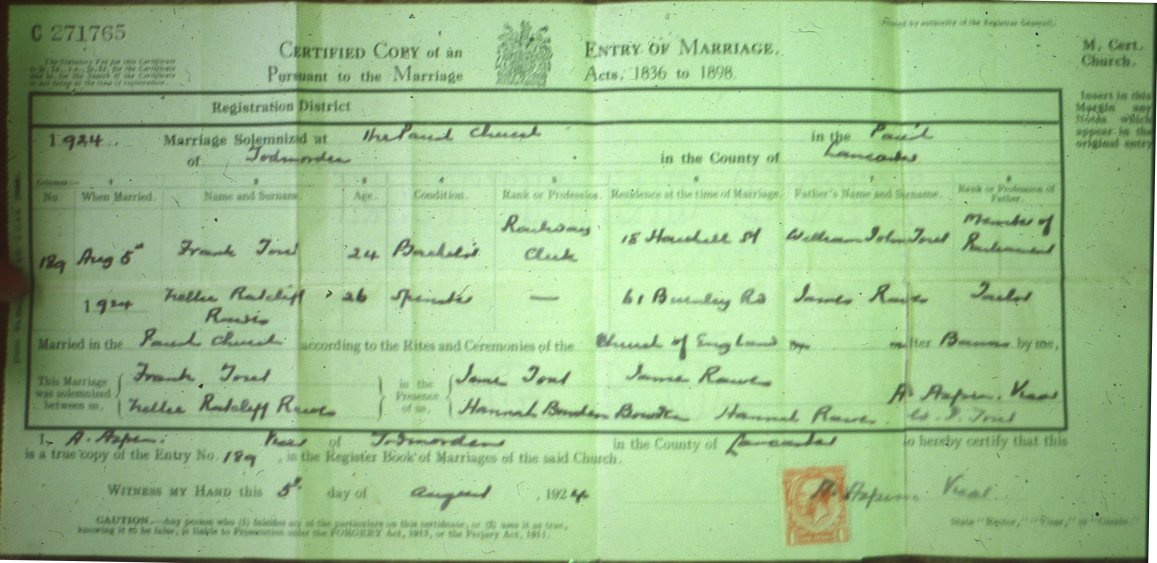 C 271765
Printed by authority of the Registrar General.
CERTIFIED COPY of an ENTRY OF MARRIAGE.
Pursuant to the Marriage Acts, 1836 to 1898.
M. Cert.
Church.
The Statutory Fee for this Certificate
Insert in this
Margin any
Notes which
appear in the
original entry
Registration District
1924. Marriage Solemnized at the Parish Church in the Parish
of Todmorden in the County of Lancaster
Columns:— 1 2 3 4 5 6 7 8
No. When Married. Name and Surname. Age. Condition. Rank or Profession. Residence at the time of Marriage. Father's Name and Surname. Rank or Profession of Father.
189 Aug 5th Frank Tout 24 Bachelor Railway Clerk 18 St William John Tout Member of Parliament
1924 Nellie Ratcliff Rawes 26 Spinster — 61 Burnley Rd James Rawes Tailor
Married in the Parish Church according to the Rites and Ceremonies of the Church of England after Banns by me,
This Marriage was solemnized between us, Frank Tout in the Presence of us, James Rawes
Nellie Ratcliff Rawes Hannah Bowden Hannah Rawes W. J. Tout
A. Aspin. Vicar
I, A. Aspin. Vicar of Todmorden in the County of Lancaster do hereby certify that this
is a true copy of the Entry No. 189, in the Register Book of Marriages of the said Church.
WITNESS MY HAND this 5th day of August, 1924
A. Aspin Vicar.
CAUTION.—Any person who (1) falsifies any of the particulars on this certificate, or (2) uses it as true,
knowing it to be false, is liable to Prosecution under the FORGERY Act, 1913, or the Perjury Act, 1911.
State "Rector," "Vicar," or "Curate."